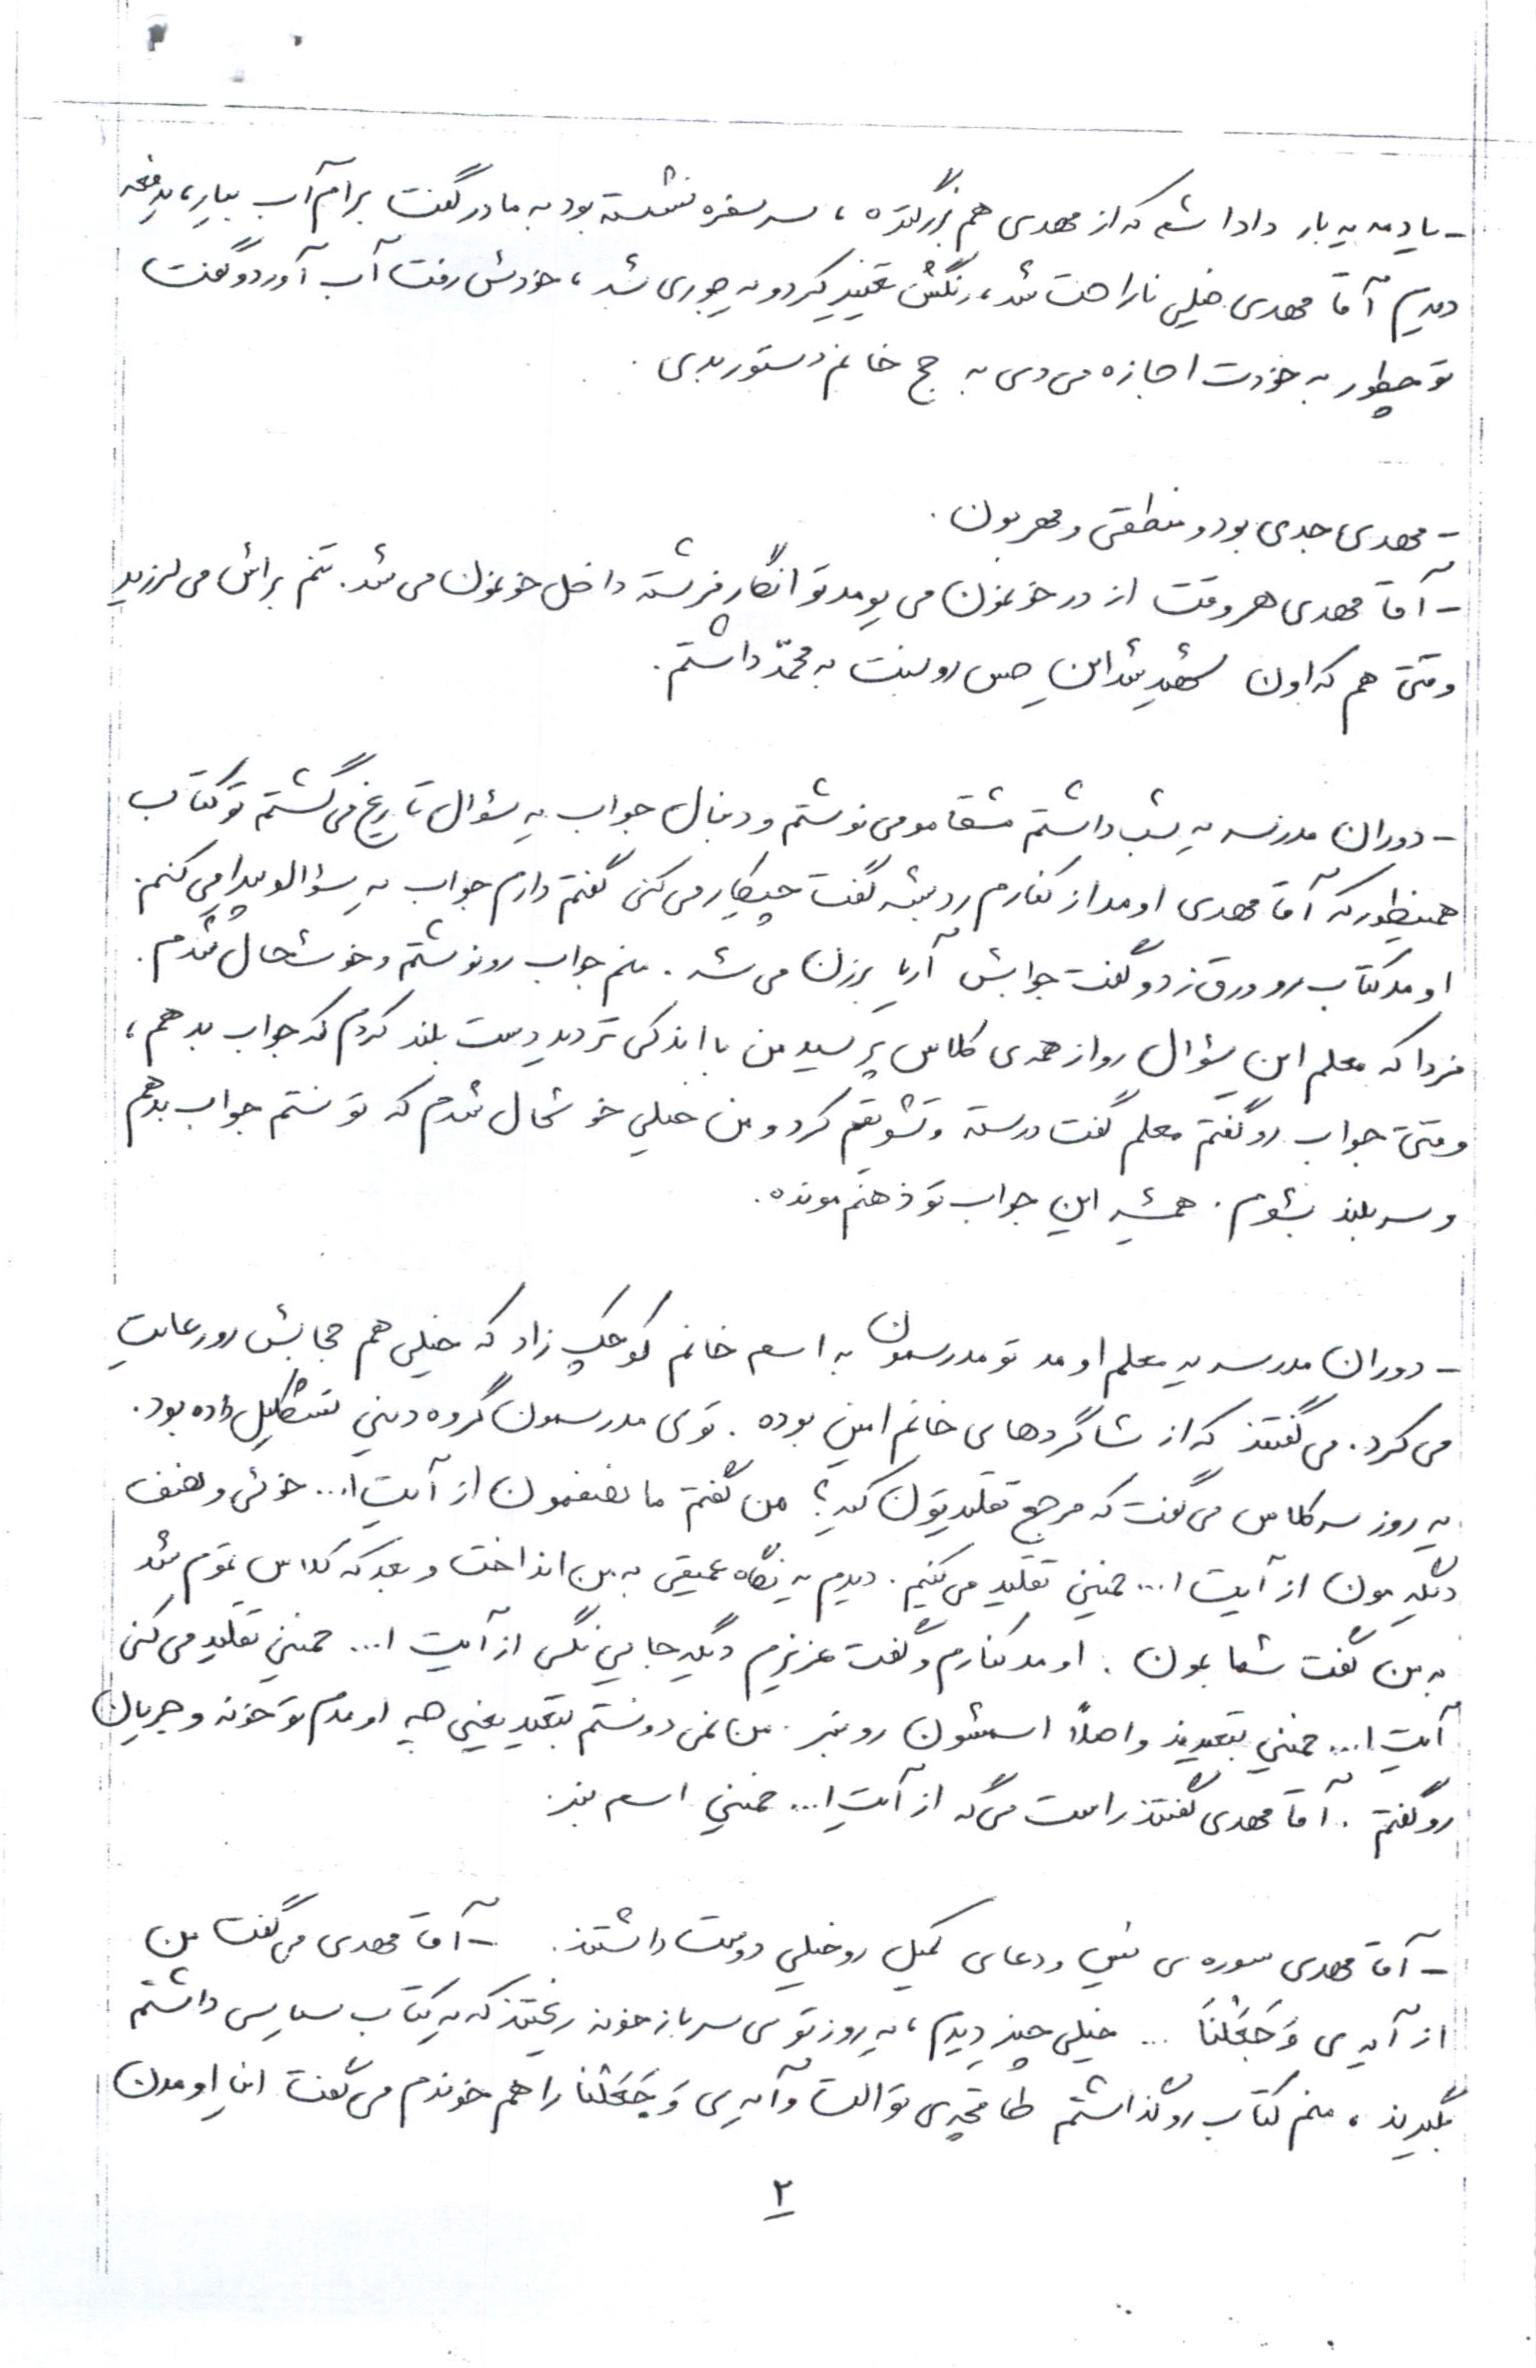 - یادمه یه بار داداشم که از مهدی هم بزرگتره، سر سفره نشسته بود به مادر گفت برام آب بیار، یدفعه
دیدم آقا مهدی خیلی ناراحت شد، رنگش تغییر کرد و یه جوری شد، خودش رفت آب آورد و گفت
تو چطور به خودت اجازه می دی به حج خانم دستور بدی.
- مهدی جدی بود و منطقی و مهربون.
- آقا مهدی هر وقت از در خونمون می یومد تو انگار فرشته داخل خونمون می شد. تنم براش می لرزید
وقتی هم که اون شهید شد این حس رو نسبت به محمّد داشتم.
- دوران مدرسه یه شب داشتم مشقامو می نوشتم و دنبال جواب یه سؤال تاریخ می گشتم تو کتاب
همینطور که آقا مهدی اومد از کنارم رد بشه گفت چیکار می کنی گفتم دارم جواب یه سؤالو پیدا می کنم.
اومد کتاب رو ورق زد و گفت جوابش آریو برزن می شه. منم جواب رو نوشتم و خوشحال شدم.
فردا که معلم این سؤال رو از همه ی کلاس پرسید من با اندکی تردید دست بلند کردم که جواب بدهم،
وقتی جواب رو گفتم معلم گفت درسته و تشویقم کرد و من خیلی خوشحال شدم که تونستم جواب بدهم
و سربلند بشوم. همیشه این جواب تو ذهنم مونده.
- دوران مدرسه یه معلم اومد تو مدرسمون به اسم خانم کوچک زاد که خیلی هم حجابش رو رعایت
می کرد. می گفتند که از شاگردهای خانم امین بوده. توی مدرسمون گروه دینی تشکیل داده بود.
یه روز سر کلاس می گفت که مرجع تقلیدتون کیه؟ من گفتم ما نصفمون از آیت ا... خوئی و نصف
دیگه مون از آیت ا... خمینی تقلید می کنیم. دیدم یه نگاه عمیقی به من انداخت و بعد که کلاس تموم شد
به من گفت شما بمون. اومد کنارم و گفت عزیزم دیگه جایی نگی از آیت ا... خمینی تقلید می کنی
آیت ا... خمینی تبعیدند و اصلاً اسمشون رو نبر. من نمی دونستم تبعید یعنی چه اومدم تو خونه و جریان
رو گفتم. آقا مهدی گفتند راست می گه از آیت ا... خمینی اسم نبر.
- آقا مهدی سوره ی و دعای کمیل رو خیلی دوست داشتند. - آقا مهدی می گفت من
از آیه ی وَ جَعَلْنَا ... خیلی چیز دیدم، یه روز توی سربازخونه ریختند که یه کتاب سیاسی داشتم
بگیرند، منم کتاب رو گذاشتم طاقچه ی توالت و آیه ی وَ جَعَلْنَا را هم خوندم می گفت این اومدن
۲